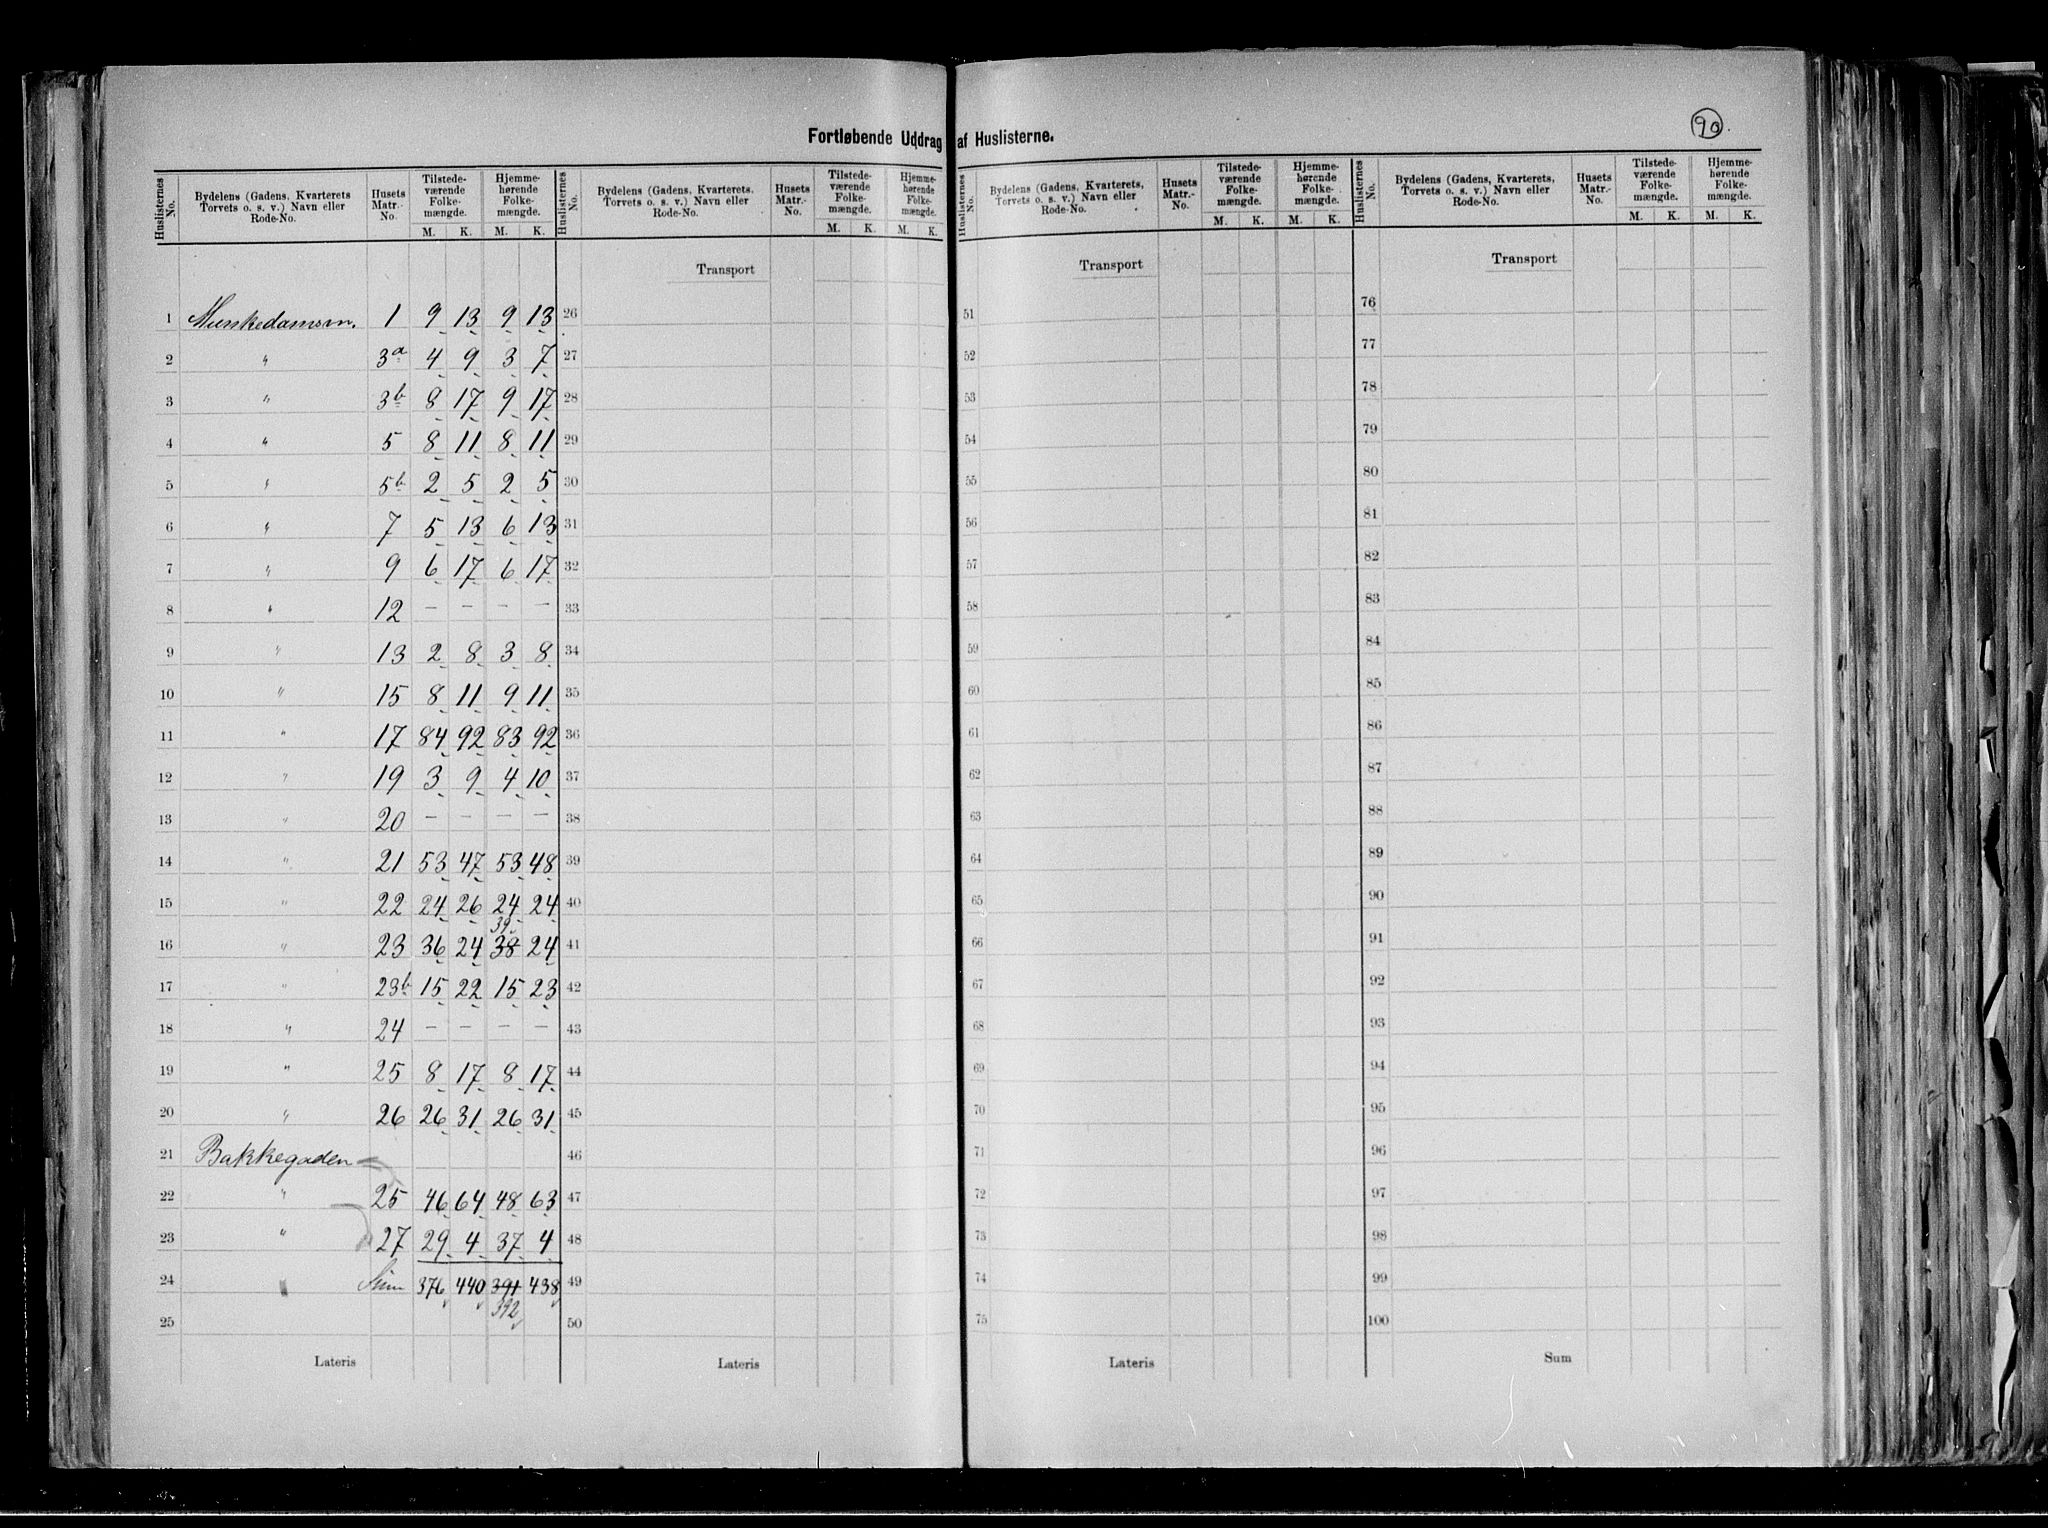 90.
Fortløbende Uddrag af Huslisterne.
Huslisternes No. Bydelens (Gadens, Kvarterets Torvets o. s. v.) Navn eller Rode-No. Husets Matr.-No. Tilstedeværende Folkemængde. M. K. Hjemmehørende Folkemængde. M. K.
Huslisternes No. Bydelens (Gadens, Kvarterets, Torvets o. s. v.) Navn eller Rode-No. Husets Matr.-No. Tilstedeværende Folkemængde. M. K. Hjemmehørende Folkemængde. M. K.
Huslisternes No. Bydelens (Gadens, Kvarterets, Torvets o. s. v.) Navn eller Rode-No. Husets Matr.-No. Tilstedeværende Folkemængde. M. K. Hjemmehørende Folkemængde. M. K.
Huslisternes No. Bydelens (Gadens, Kvarterets, Torvets o. s. v.) Navn eller Rode-No. Husets Matr.-No. Tilstedeværende Folkemængde. M. K. Hjemmehørende Folkemængde. M. K.
Transport Transport Transport
1 Munkedamsvn. 1 9 13 9 13 26 51 76
2 " 3a 4 9 3 7 27 52 77
3 " 3b 8 17 9 17 28 53 78
4 " 5 8 11 8 11 29 54 79
5 " 5b 2 5 2 5 30 55 80
6 " 7 5 13 6 13 31 56 81
7 " 9 6 17 6 17 32 57 82
8 " 12 – – – – 33 58 83
9 " 13 2 8 3 8 34 59 84
10 " 15 8 11 9 11 35 60 85
11 " 17 84 92 83 92 36 61 86
12 " 19 3 9 4 10 37 62 87
13 " 20 – – – – 38 63 88
14 " 21 53 47 53 48 39 64 89
15 " 22 24 26 24 24 40 65 90
39
16 " 23 36 24 38 24 41 66 91
17 " 23b 15 22 15 23 42 67 92
18 " 24 – – – – 43 68 93
19 " 25 8 17 8 17 44 69 94
20 " 26 26 31 26 31 45 70 95
21 Bakkegaden 46 71 96
22 " 25 46 64 48 63 47 72 97
23 " 27 29 4 37 4 48 73 98
24 " Sum 376 440 391 438 49 74 99
392
25 50 75 100
Lateris Lateris Lateris Sum